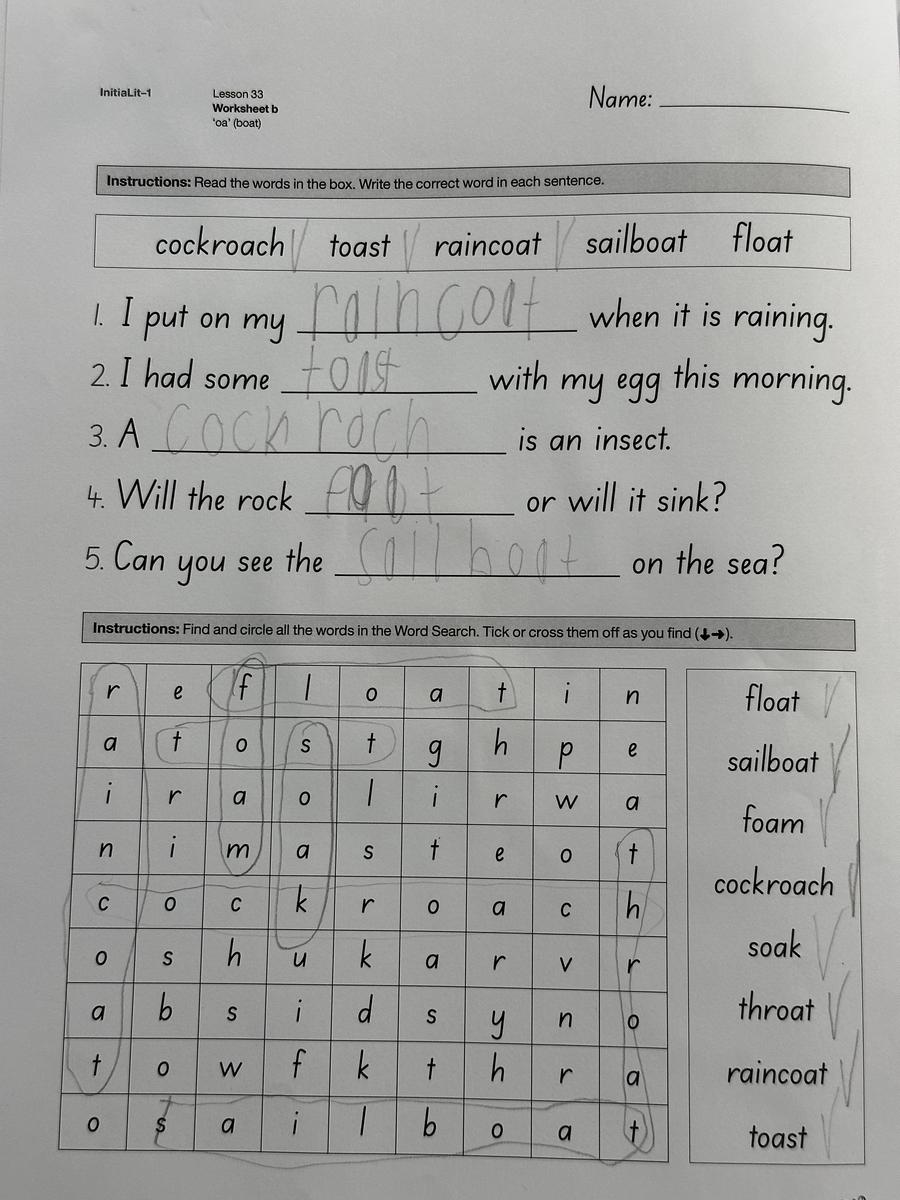 InitiaLit–1
Lesson 33
Worksheet b
'oa' (boat)
Name:
Instructions: Read the words in the box. Write the correct word in each sentence.
cockroach toast raincoat sailboat float
1. I put on my raincoat when it is raining.
2. I had some toast with my egg this morning.
3. A cock roch is an insect.
4. Will the rock float or will it sink?
5. Can you see the sail boat on the sea?
Instructions: Find and circle all the words in the Word Search. Tick or cross them off as you find (↓→).
r e f l o a t i n
a t o s t g h p e
i r a o l i r w a
n i m a s t e o t
c o c k r o a c h
o s h u k a r v r
a b s i d s y n o
t o w f k t h r a
o s a i l b o a t
float
sailboat
foam
cockroach
soak
throat
raincoat
toast